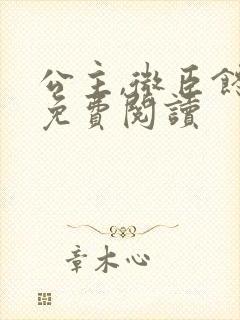 公主,微臣
免費閱讀
章木心